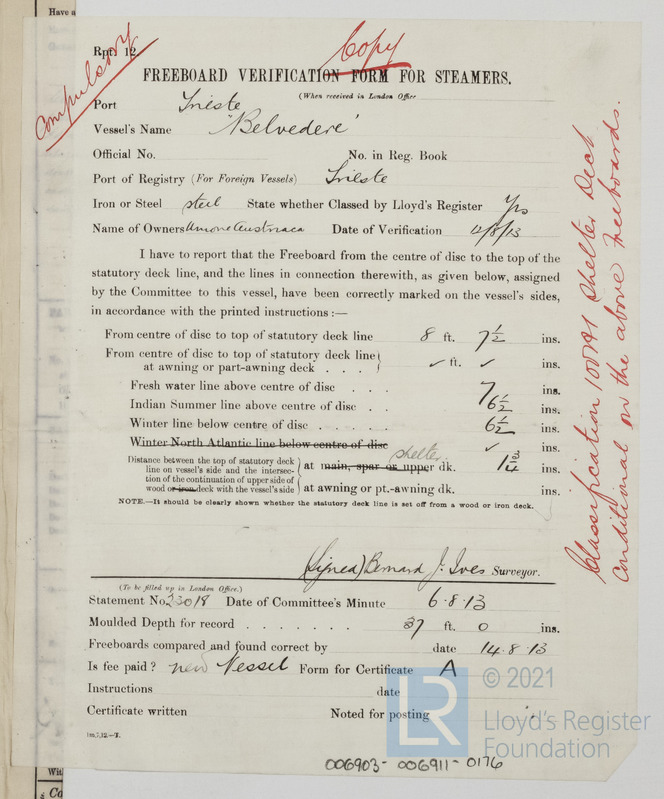 Have a
Rpt. 12.
Copy
Compulsory
FREEBOARD VERIFICATION FORM FOR STEAMERS.
(When received in London Office
Port Trieste
Vessel's Name 'Belvedere'
Official No. No. in Reg. Book
Port of Registry (For Foreign Vessels) Trieste
Iron or Steel steel State whether Classed by Lloyd's Register Yes
Name of Owners Unione Austriaca Date of Verification 4/8/13
I have to report that the Freeboard from the centre of disc to the top of the
statutory deck line, and the lines in connection therewith, as given below, assigned
by the Committee to this vessel, have been correctly marked on the vessel's sides,
in accordance with the printed instructions:—
From centre of disc to top of statutory deck line 8 ft. 7 1/2 ins.
From centre of disc to top of statutory deck line
at awning or part-awning deck . . . ✓ ft. ✓ ins.
Fresh water line above centre of disc . . . 7 ins.
Indian Summer line above centre of disc . . 6 1/2 ins.
Winter line below centre of disc . . . . . 6 1/2 ins.
Winter North Atlantic line below centre of disc ✓ ins.
Distance between the top of statutory deck
line on vessel's side and the intersec-
tion of the continuation of upper side of
wood or iron deck with the vessel's side
shelter
at main, spar or upper dk. 1 3/4 ins.
at awning or pt.-awning dk. ins.
NOTE.—It should be clearly shown whether the statutory deck line is set off from a wood or iron deck.
(Signed) Bernard J. Ives Surveyor.
(To be filled up in London Office.)
Statement No. 23018 Date of Committee's Minute 6.8.13
Moulded Depth for record . . . . . . . 37 ft. 0 ins.
Freeboards compared and found correct by date 14.8.13
Is fee paid? new Vessel Form for Certificate A
Instructions date
Certificate written Noted for posting
1m,7,12.—T.
Classification 100A1 Shelter Deck
Conditional on the above freeboards.
© 2021
LR
Lloyd's Register
Foundation
006903-006911-0176
Wit
Co